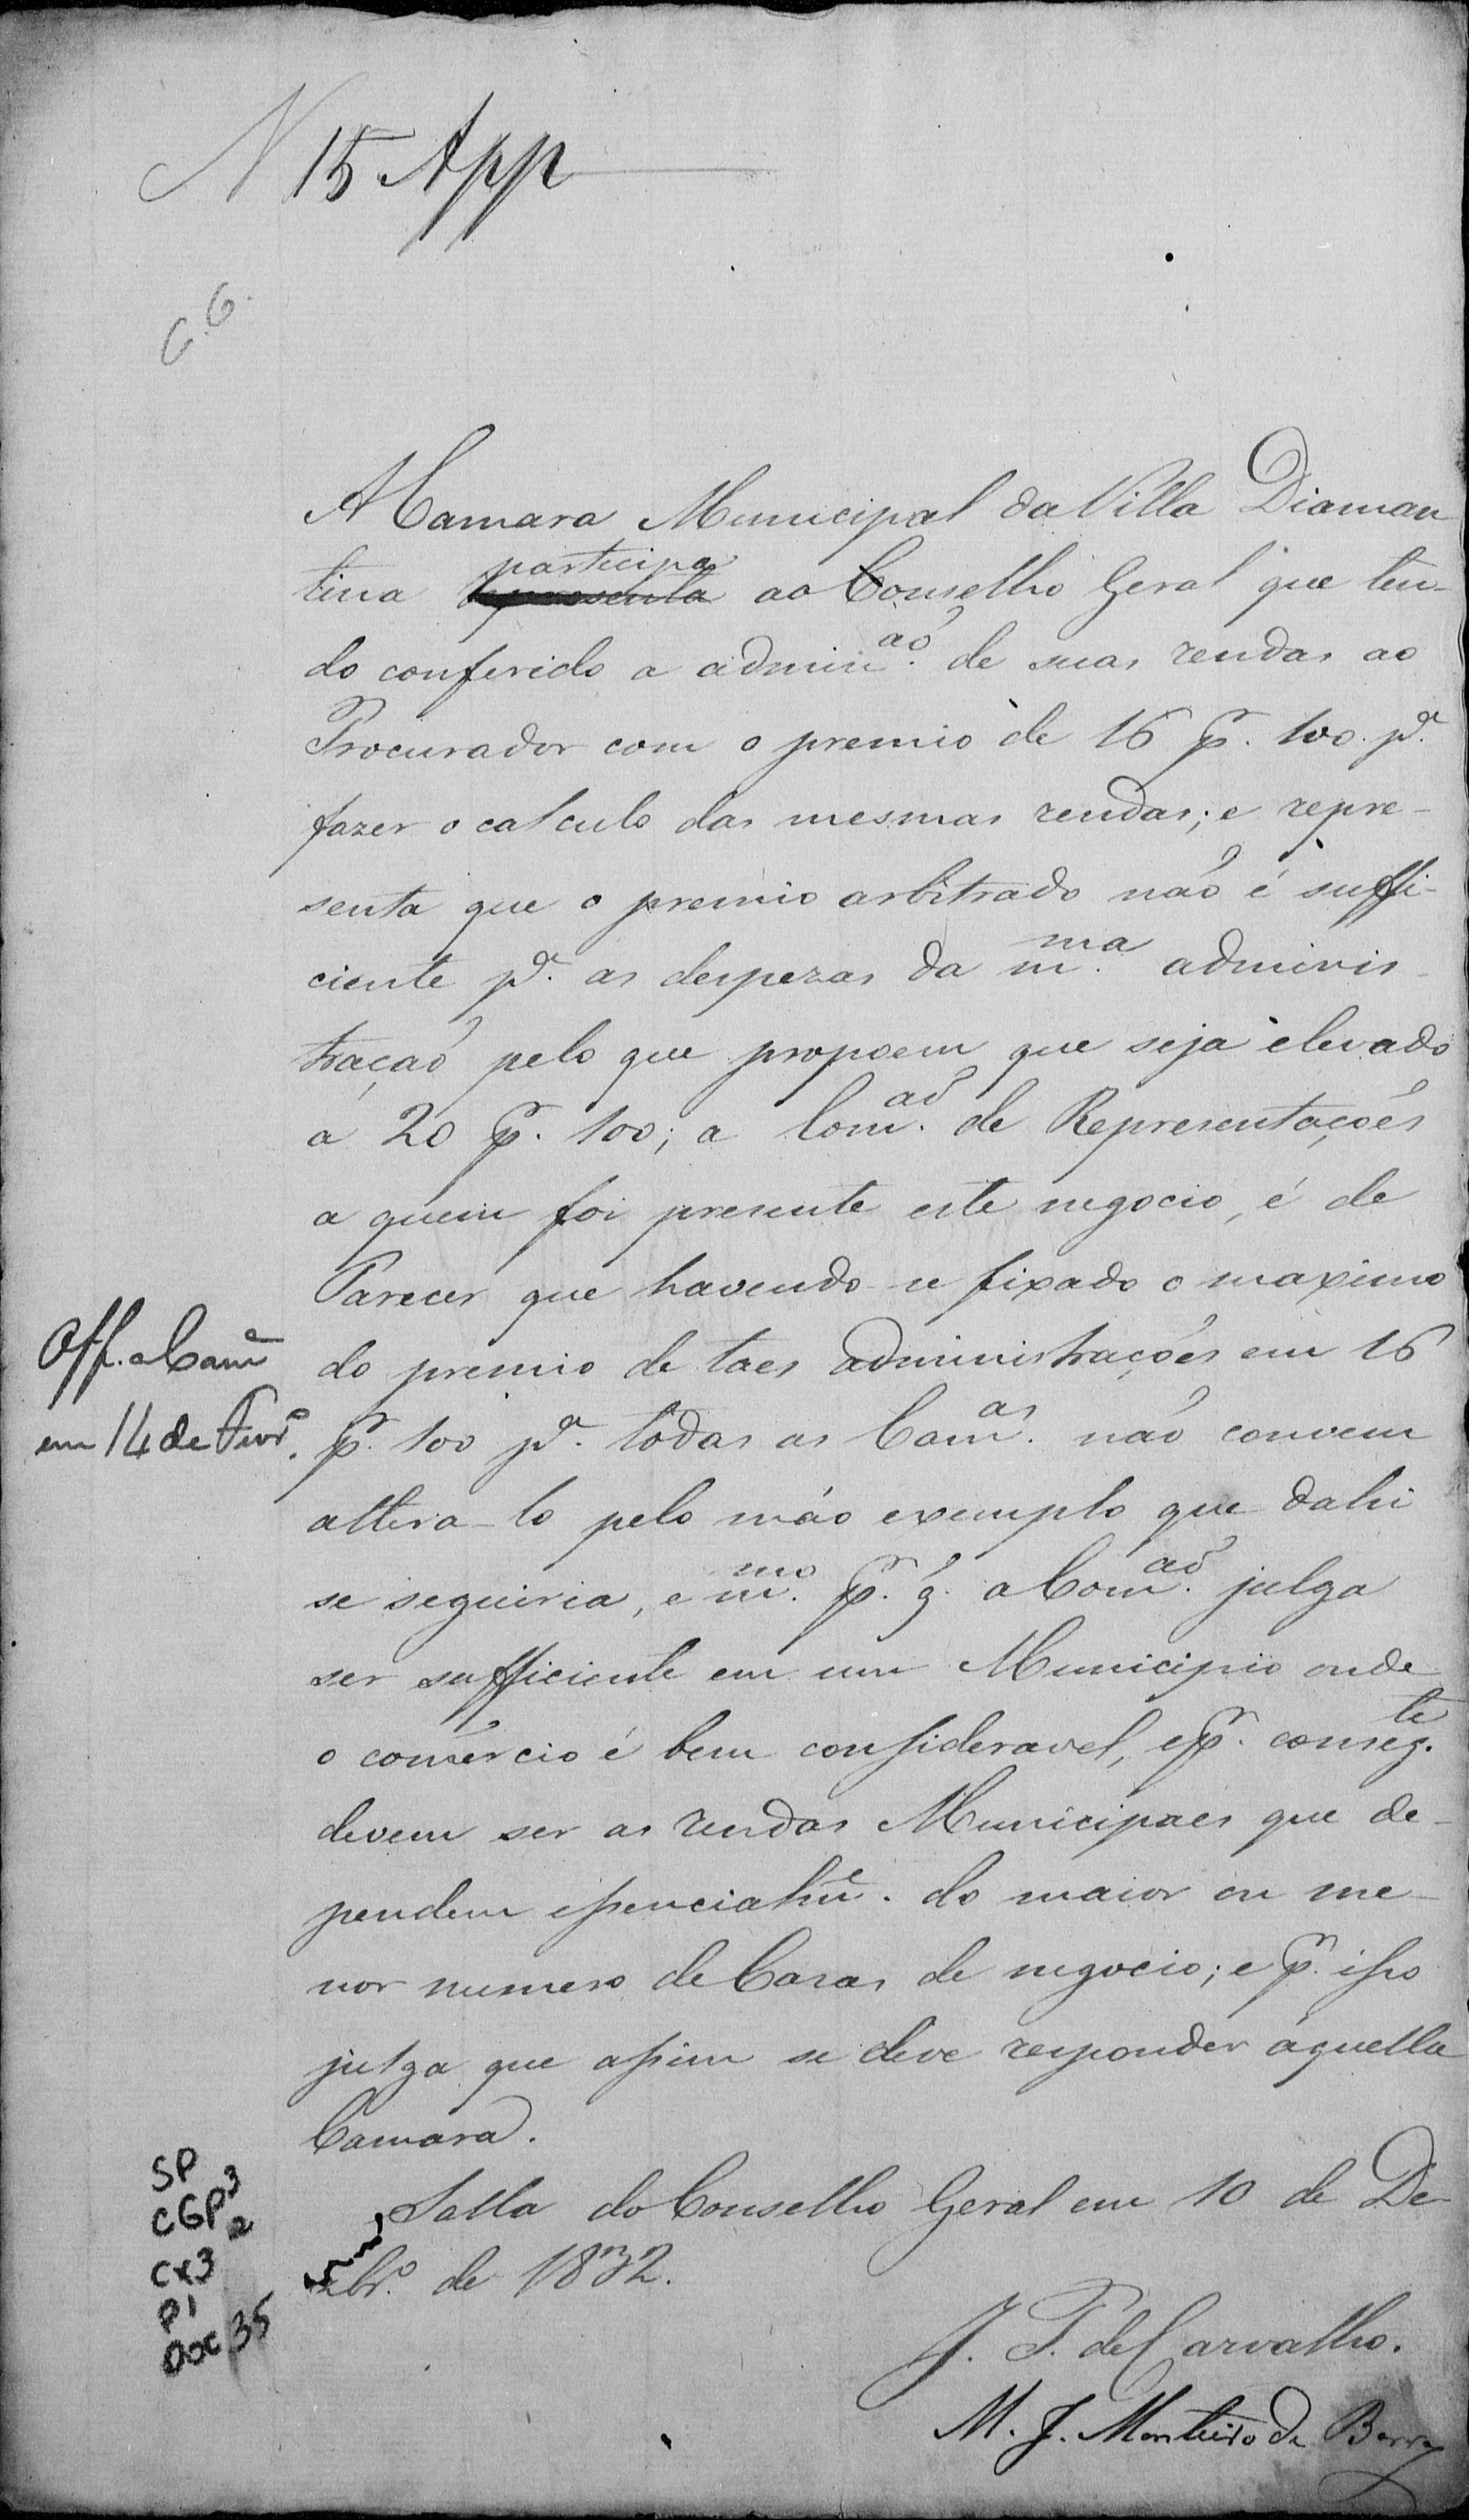 N 15 App
C.G.
A Camara Municipal da Villa Diaman
tina participa representa ao Conselho Geral que ten-
do conferido a admin.aõ de suas rendas ao
Procurador com o premio de 16 pr. 100. pa.
fazer o calculo das mesmas rendas; e repre-
senta que o premio arbitrado naõ é suffi-
ciente pa. as despezas da m.ma adminis-
traçaõ pelo que propoem que seja elevado
a 20 pr. 100; a Com.aõ de Representações
a quem foi presente este negocio, é de
Parecer que havendo-se fixado o maximo
do premio de taes administrações em 16
pr. 100 pa. todas as Cam.as naõ convem
altera-lo pelo máo exemplo que dahi
se seguiria, e m.mo pr. q. a Com.aõ julga
ser sufficiente em um Municipio onde
o comércio é bem consideravel, e pr. conseg.te
devem ser as rendas Municipaes que de-
pendem essencialme. do maior ou me-
nor numero de Casas de negocio; e pr. isso
julga que assim se deve responder áquella
Camara.
Salla do Conselho Geral em 10 de De-
zbro. de 1832.
J. F. de Carvalho.
M. J. Monteiro de Barros
Off. a Came
em 14 de Fevro.
SP
CGP3
2
CX3
P1
DOC 35